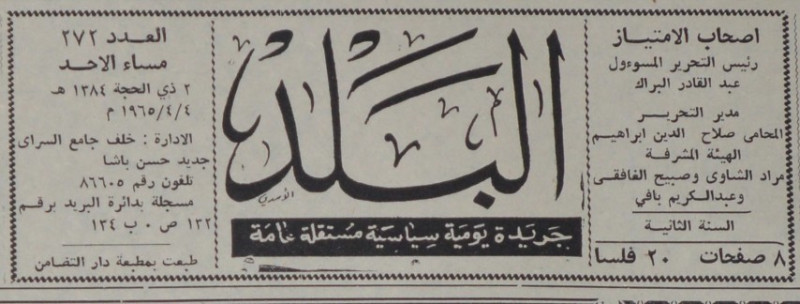 اصحاب الامتياز
رئيس التحرير المسوءول
عبد القادر البراك
مدير التحرير
المحامي صلاح الدين ابراهيم
الهيئة المشرفة
مراد الشاوى وصبيح الغافقي
وعبدالكريم بافي
السنة الثانية
٨ صفحات ٢٠ فلسا
البلد
الأسدي
جريدة يومية سياسية مستقلة عامة
العدد ٢٧٢
مساء الاحد
٢ ذي الحجة ١٣٨٤ هـ
١٩٦٥/٤/٤ م
الادارة : خلف جامع السراى
جديد حسن باشا
تلفون رقم ٨٦٦٠٥
مسجلة بدائرة البريد برقم
١٢٢ ص ٠ ب ١٣٤
طبعت بمطبعة دار التضامن